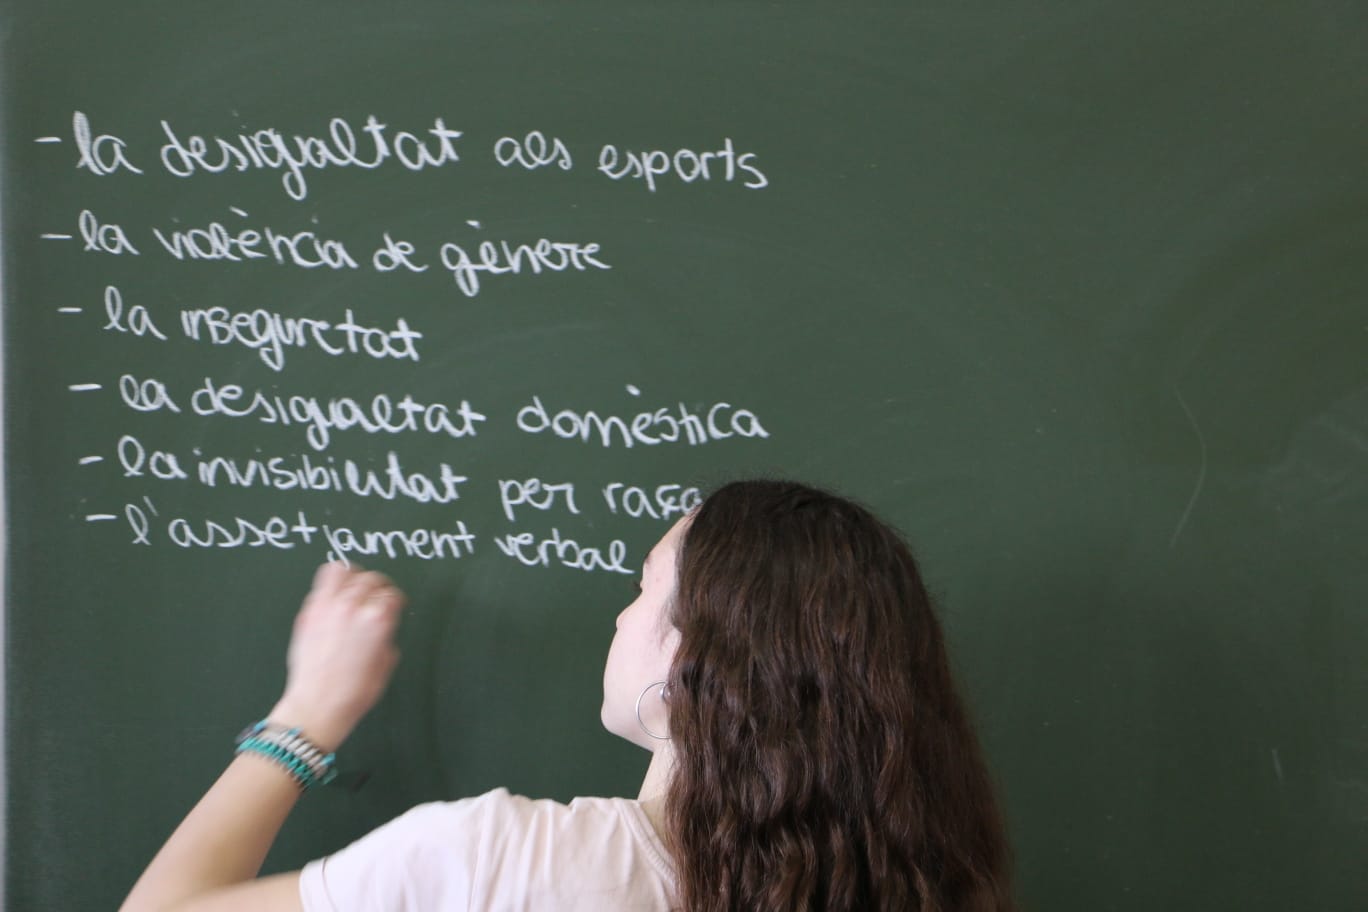 - la desigualtat als esports
- la violència de gènere
- la inseguretat
- la desigualtat domèstica
- la invisibilitat per raça
- l'assetjament verbal